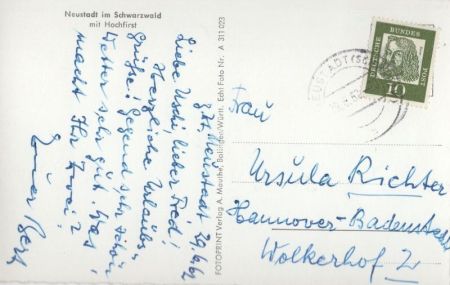 Neustadt im Schwarzwald
mit Hochfirst
z.Zt. Neustadt 29.6.62
Liebe Uschi, lieber Fred!
Herzliche Urlaubs-
grüße! Gegend sehr schön
Wetter sehr gut. Was
macht Ihr Zwei?
Euer Bert
FOTOPRINT Verlag A. Mauthe, Balingen/Württ. Echt Foto Nr. A 311 023
DEUTSCHE BUNDESPOST
10
NEUSTADT (SCH
Frau
Ursula Richter
Hannover-Badenstedt
Wolkerhof 2